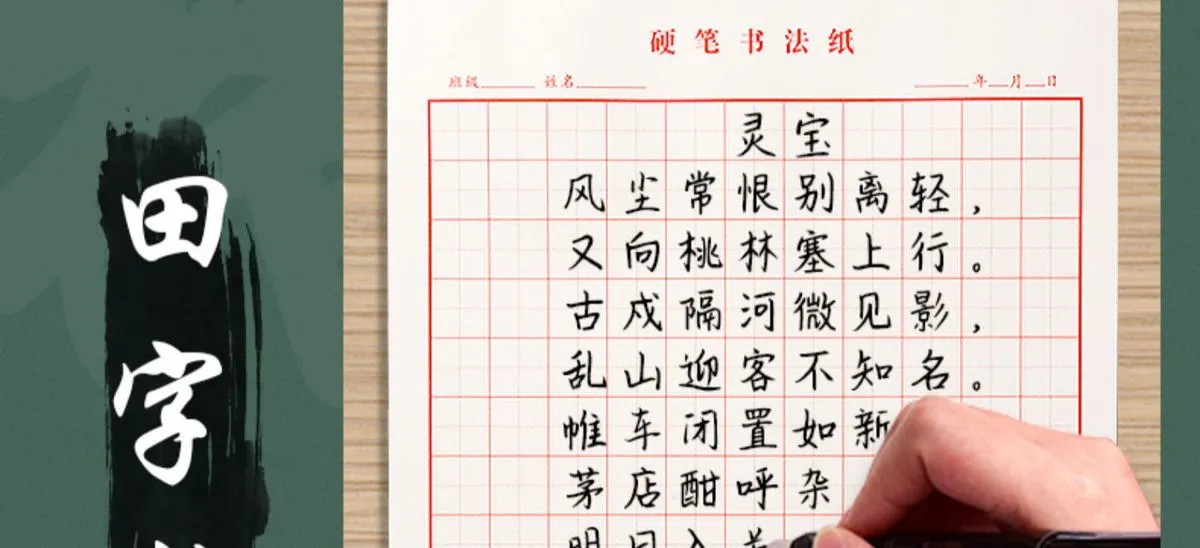 田字
硬笔书法纸
班级 姓名 年 月 日
灵宝
风尘常恨别离轻，
又向桃林塞上行。
古戍隔河微见影，
乱山迎客不知名。
帷车闭置如新
茅店酣呼杂
明日入